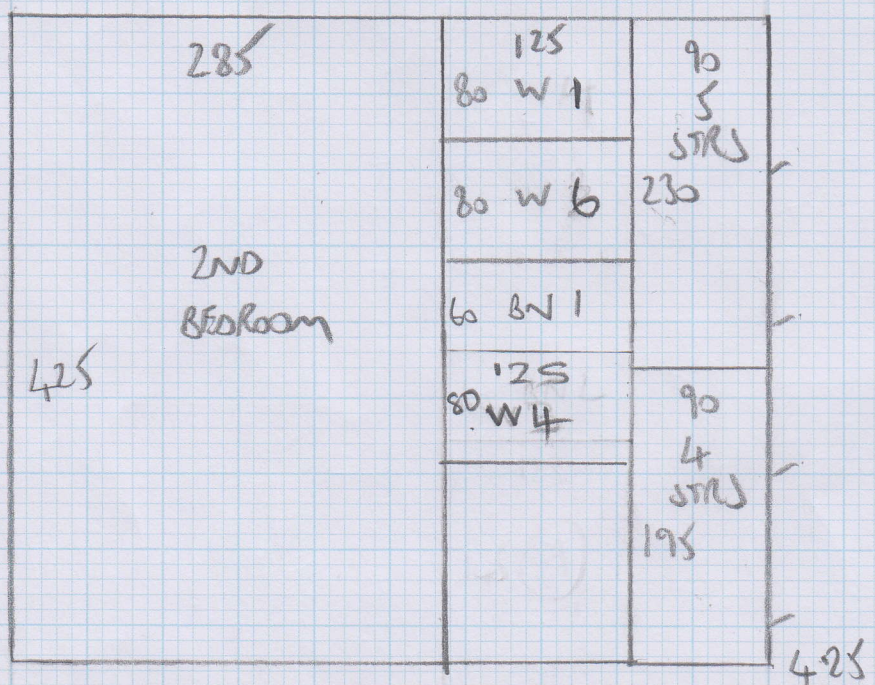 285
2ND
BEDROOM
425
125
80 W 1
80 W 6
60 BN 1
125
80 W 4
90
5
STRS
230
90
4
STRS
195
4.25